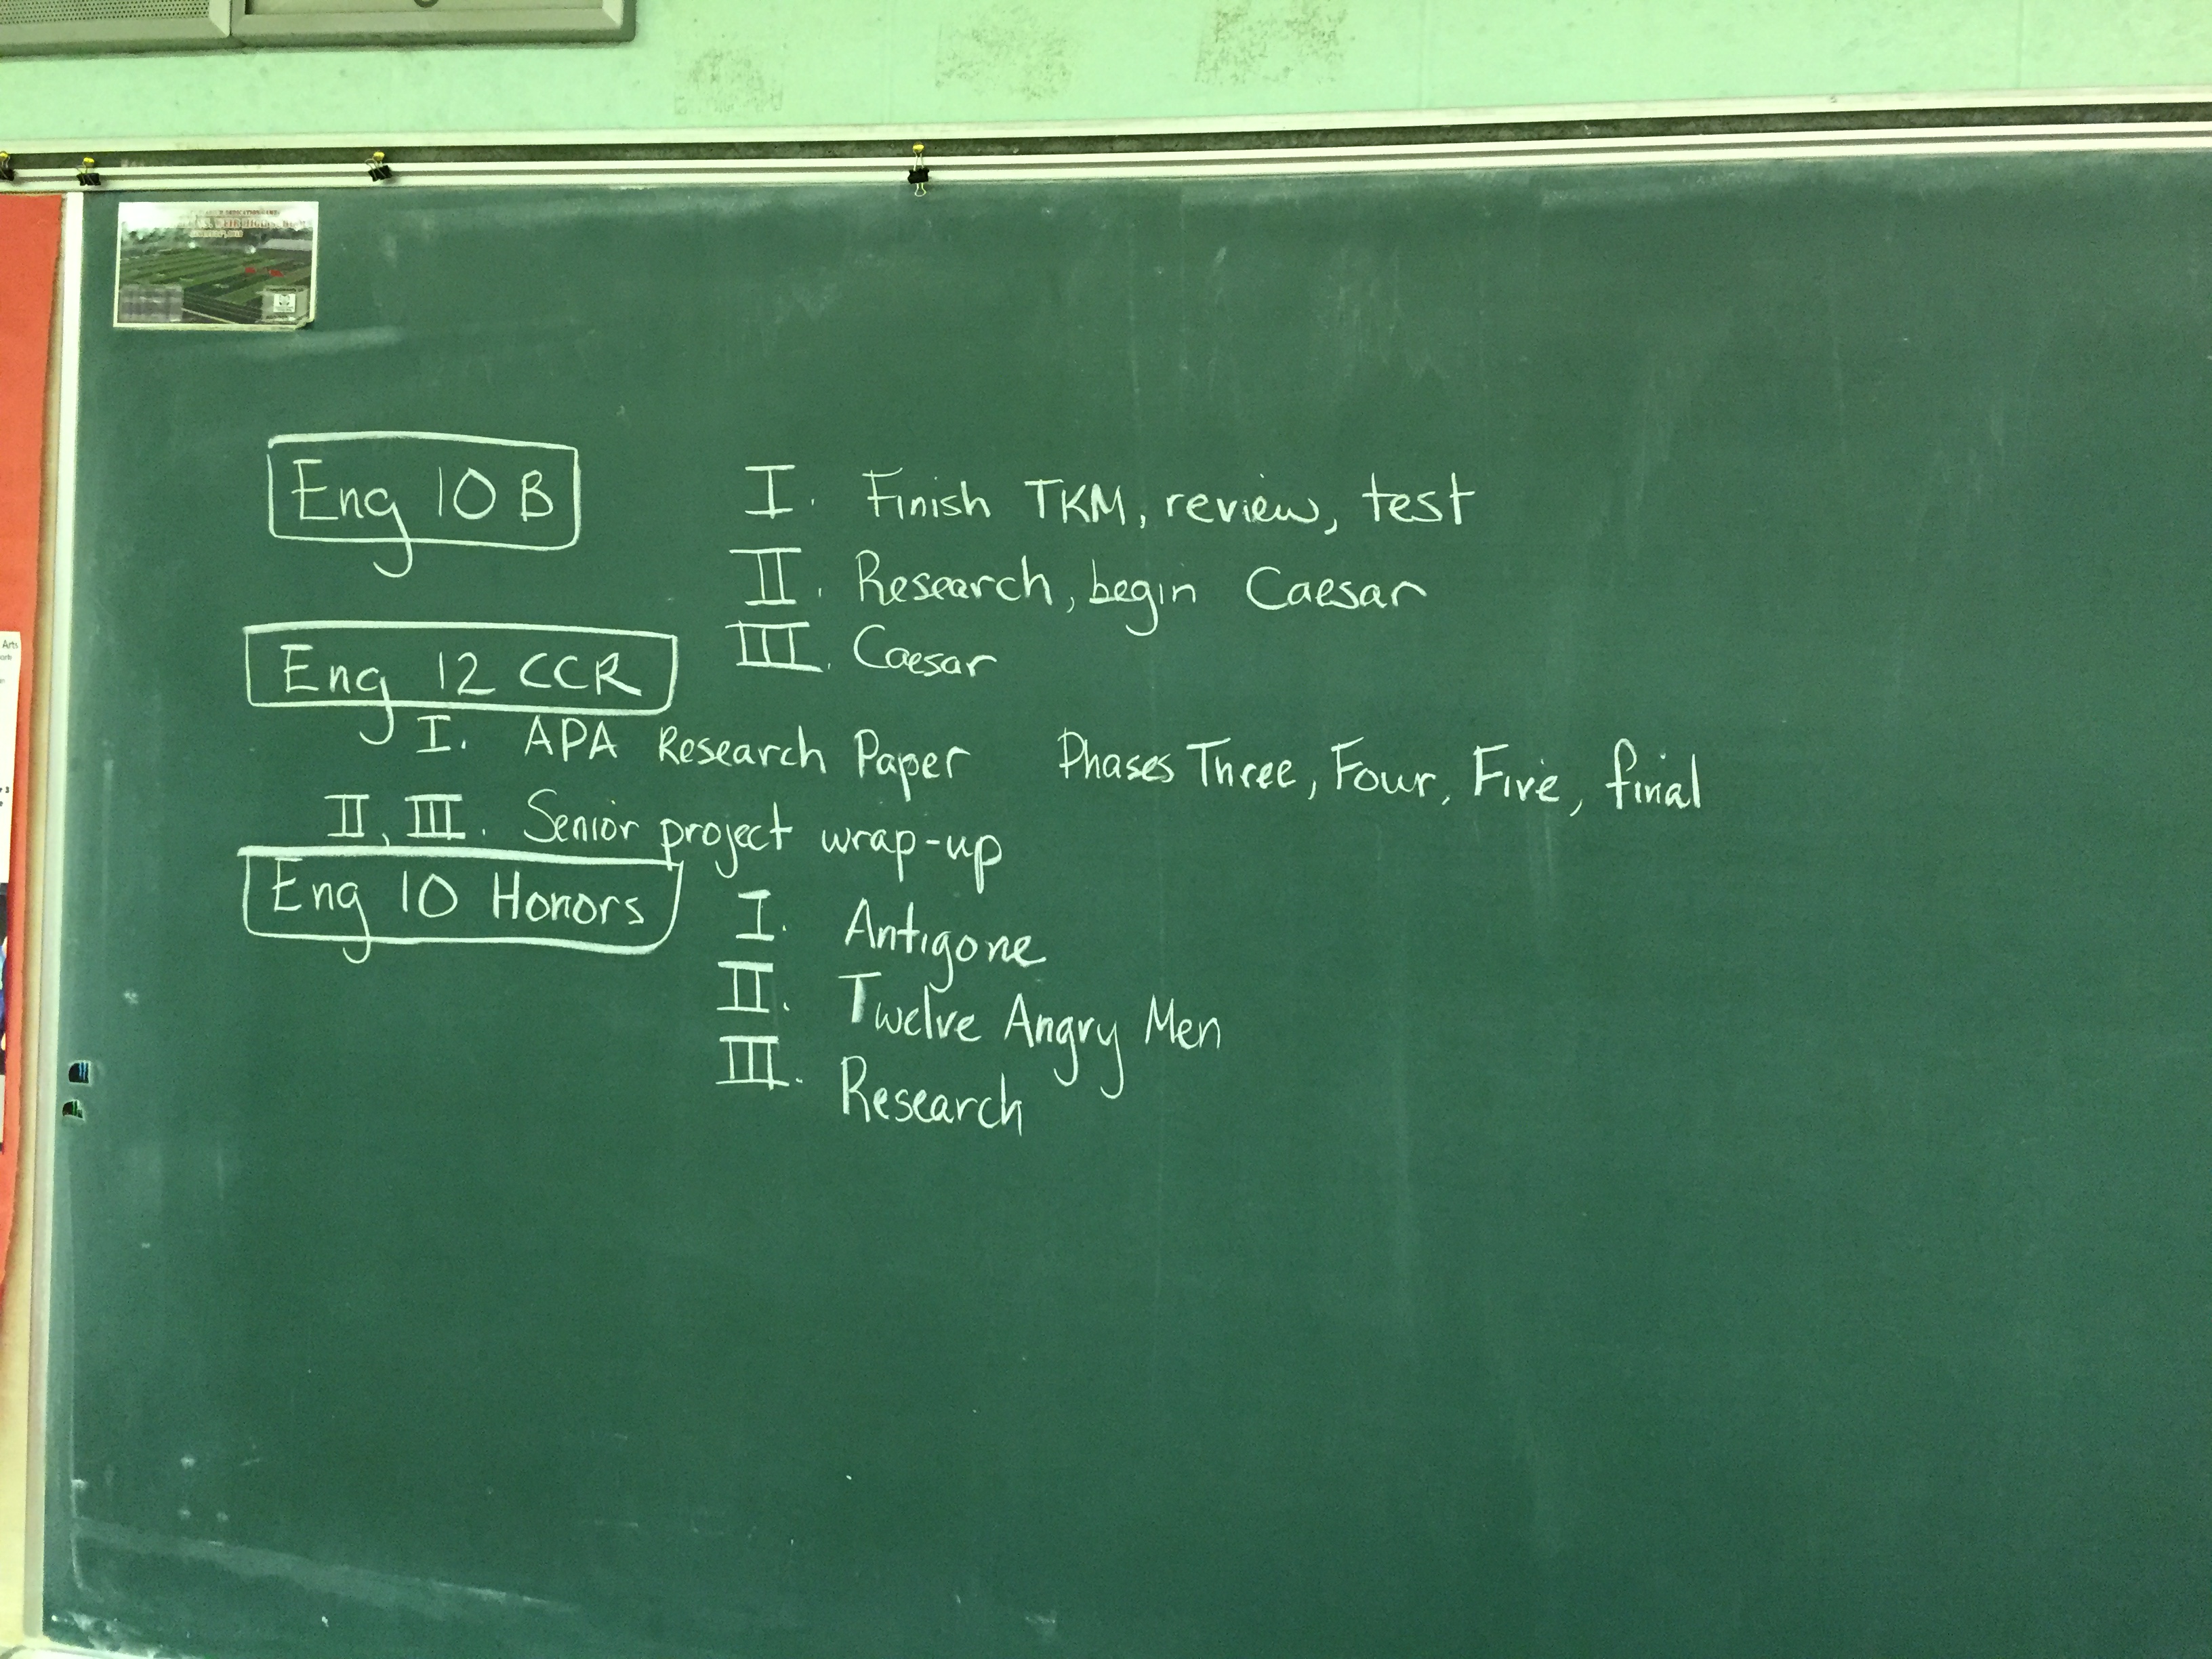 Eng 10 B
I. Finish TKM, review, test
II. Research, begin Caesar
III. Caesar
Eng 12 CCR
I. APA Research Paper Phases Three, Four, Five, final
II, III. Senior project wrap-up
Eng 10 Honors
I. Antigone
II. Twelve Angry Men
III. Research
Arts